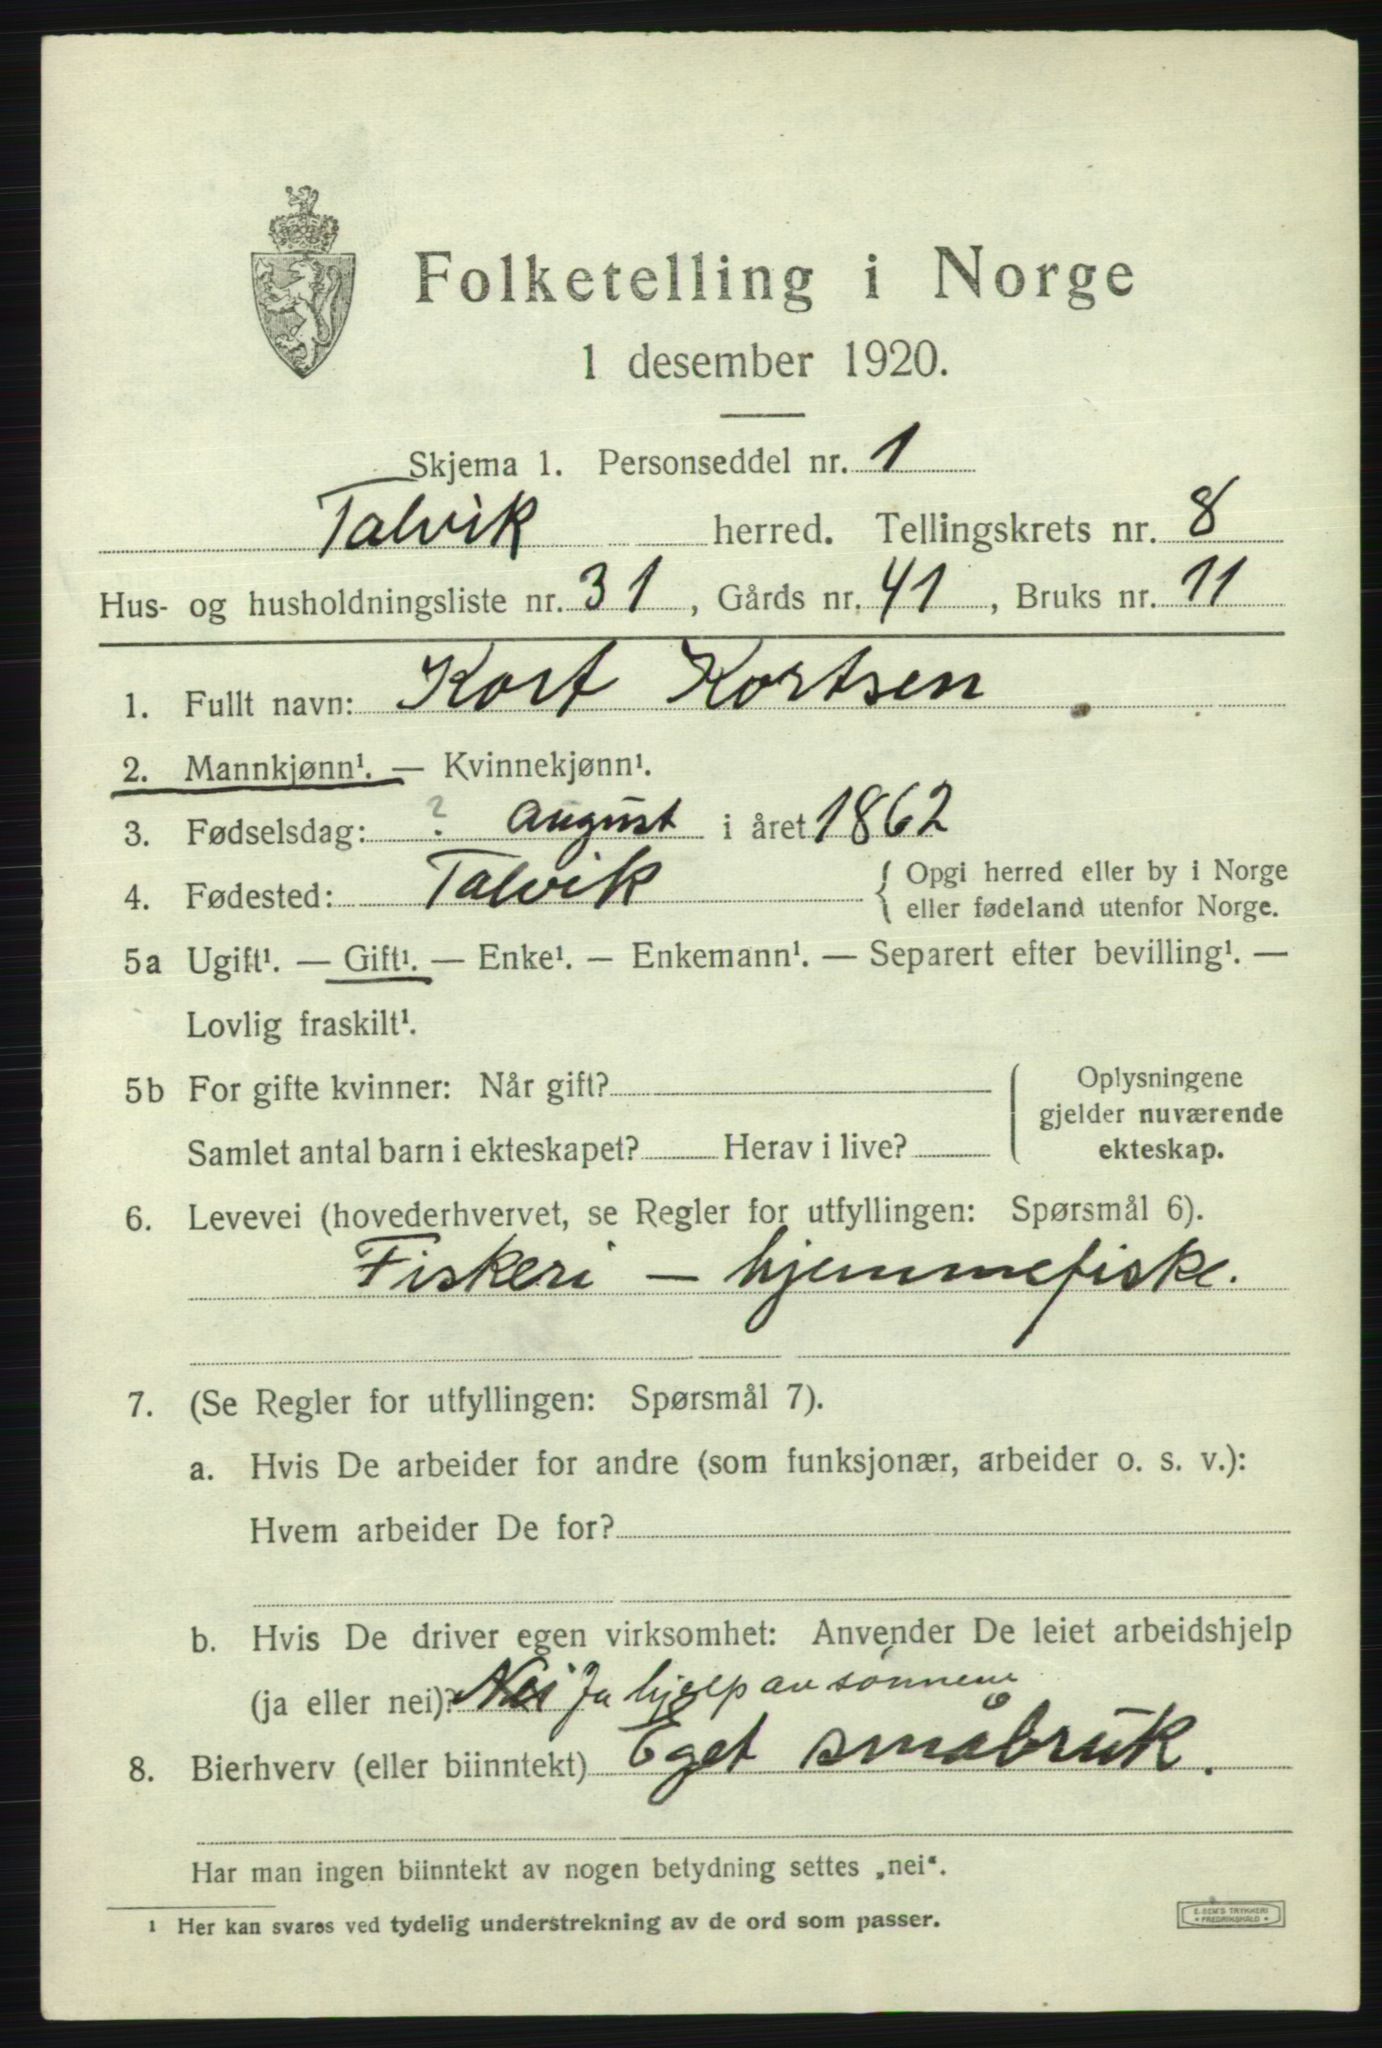 Folketelling i Norge
1 desember 1920.
Skjema 1. Personseddel nr. 1
Talvik herred. Tellingskrets nr. 8
Hus- og husholdningsliste nr. 31, Gårds nr. 41, Bruks nr. 11
1. Fullt navn: Kort Kortsen
2. Mannkjønn¹. — Kvinnekjønn¹.
3. Fødselsdag: ? august i året 1862
4. Fødested: Talvik { Opgi herred eller by i Norge
eller fødeland utenfor Norge.
5a Ugift¹. — Gift¹. — Enke¹. — Enkemann¹. — Separert efter bevilling¹. —
Lovlig fraskilt¹.
5b For gifte kvinner: Når gift? Oplysningene
gjelder nuværende
Samlet antal barn i ekteskapet? Herav i live? ekteskap.
6. Levevei (hovederhvervet, se Regler for utfyllingen: Spørsmål 6).
Fiskeri — hjemmefiske.
7. (Se Regler for utfyllingen: Spørsmål 7).
a. Hvis De arbeider for andre (som funksjonær, arbeider o. s. v.):
Hvem arbeider De for?
b. Hvis De driver egen virksomhet: Anvender De leiet arbeidshjelp
(ja eller nei)? Nei Ja hjelp av sønnene
8. Bierhverv (eller biinntekt) Eget småbruk.
Har man ingen biinntekt av nogen betydning settes „nei“.
¹ Her kan svares ved tydelig understrekning av de ord som passer.
E. SEM'S TRYKKERI
FREDRIKSHALD